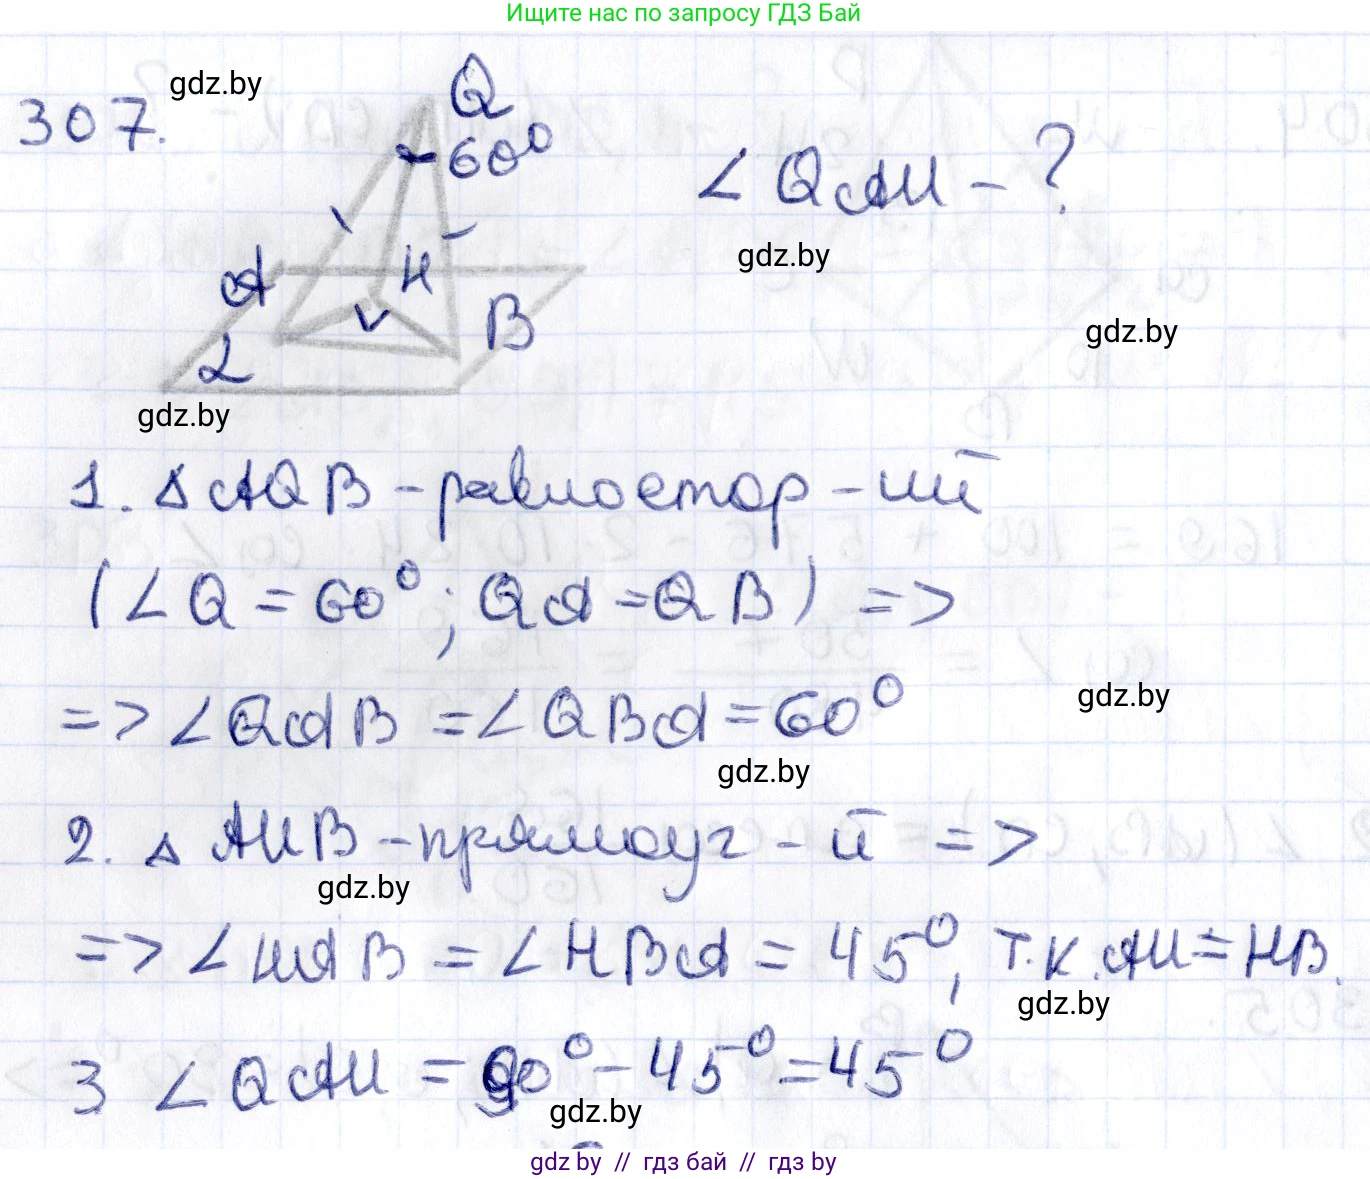 Ищите нас по запросу ГДЗ Бай
gdz.by
307.
Q
60°
∠ QAH - ?
gdz.by
A
H
B
gdz.by
α
gdz.by
1. △ AQB - равностор-ий
(∠Q = 60°; QA = QB) =>
=> ∠QAB = ∠QBA = 60°
gdz.by
gdz.by
2. △ AHB - прямоуг-й =>
gdz.by
=> ∠HAB = ∠HBA = 45°, т.к. AH = HB.
gdz.by
3 ∠QAH = 90° - 45° = 45°
gdz.by
gdz by // гдз бай // gdz by